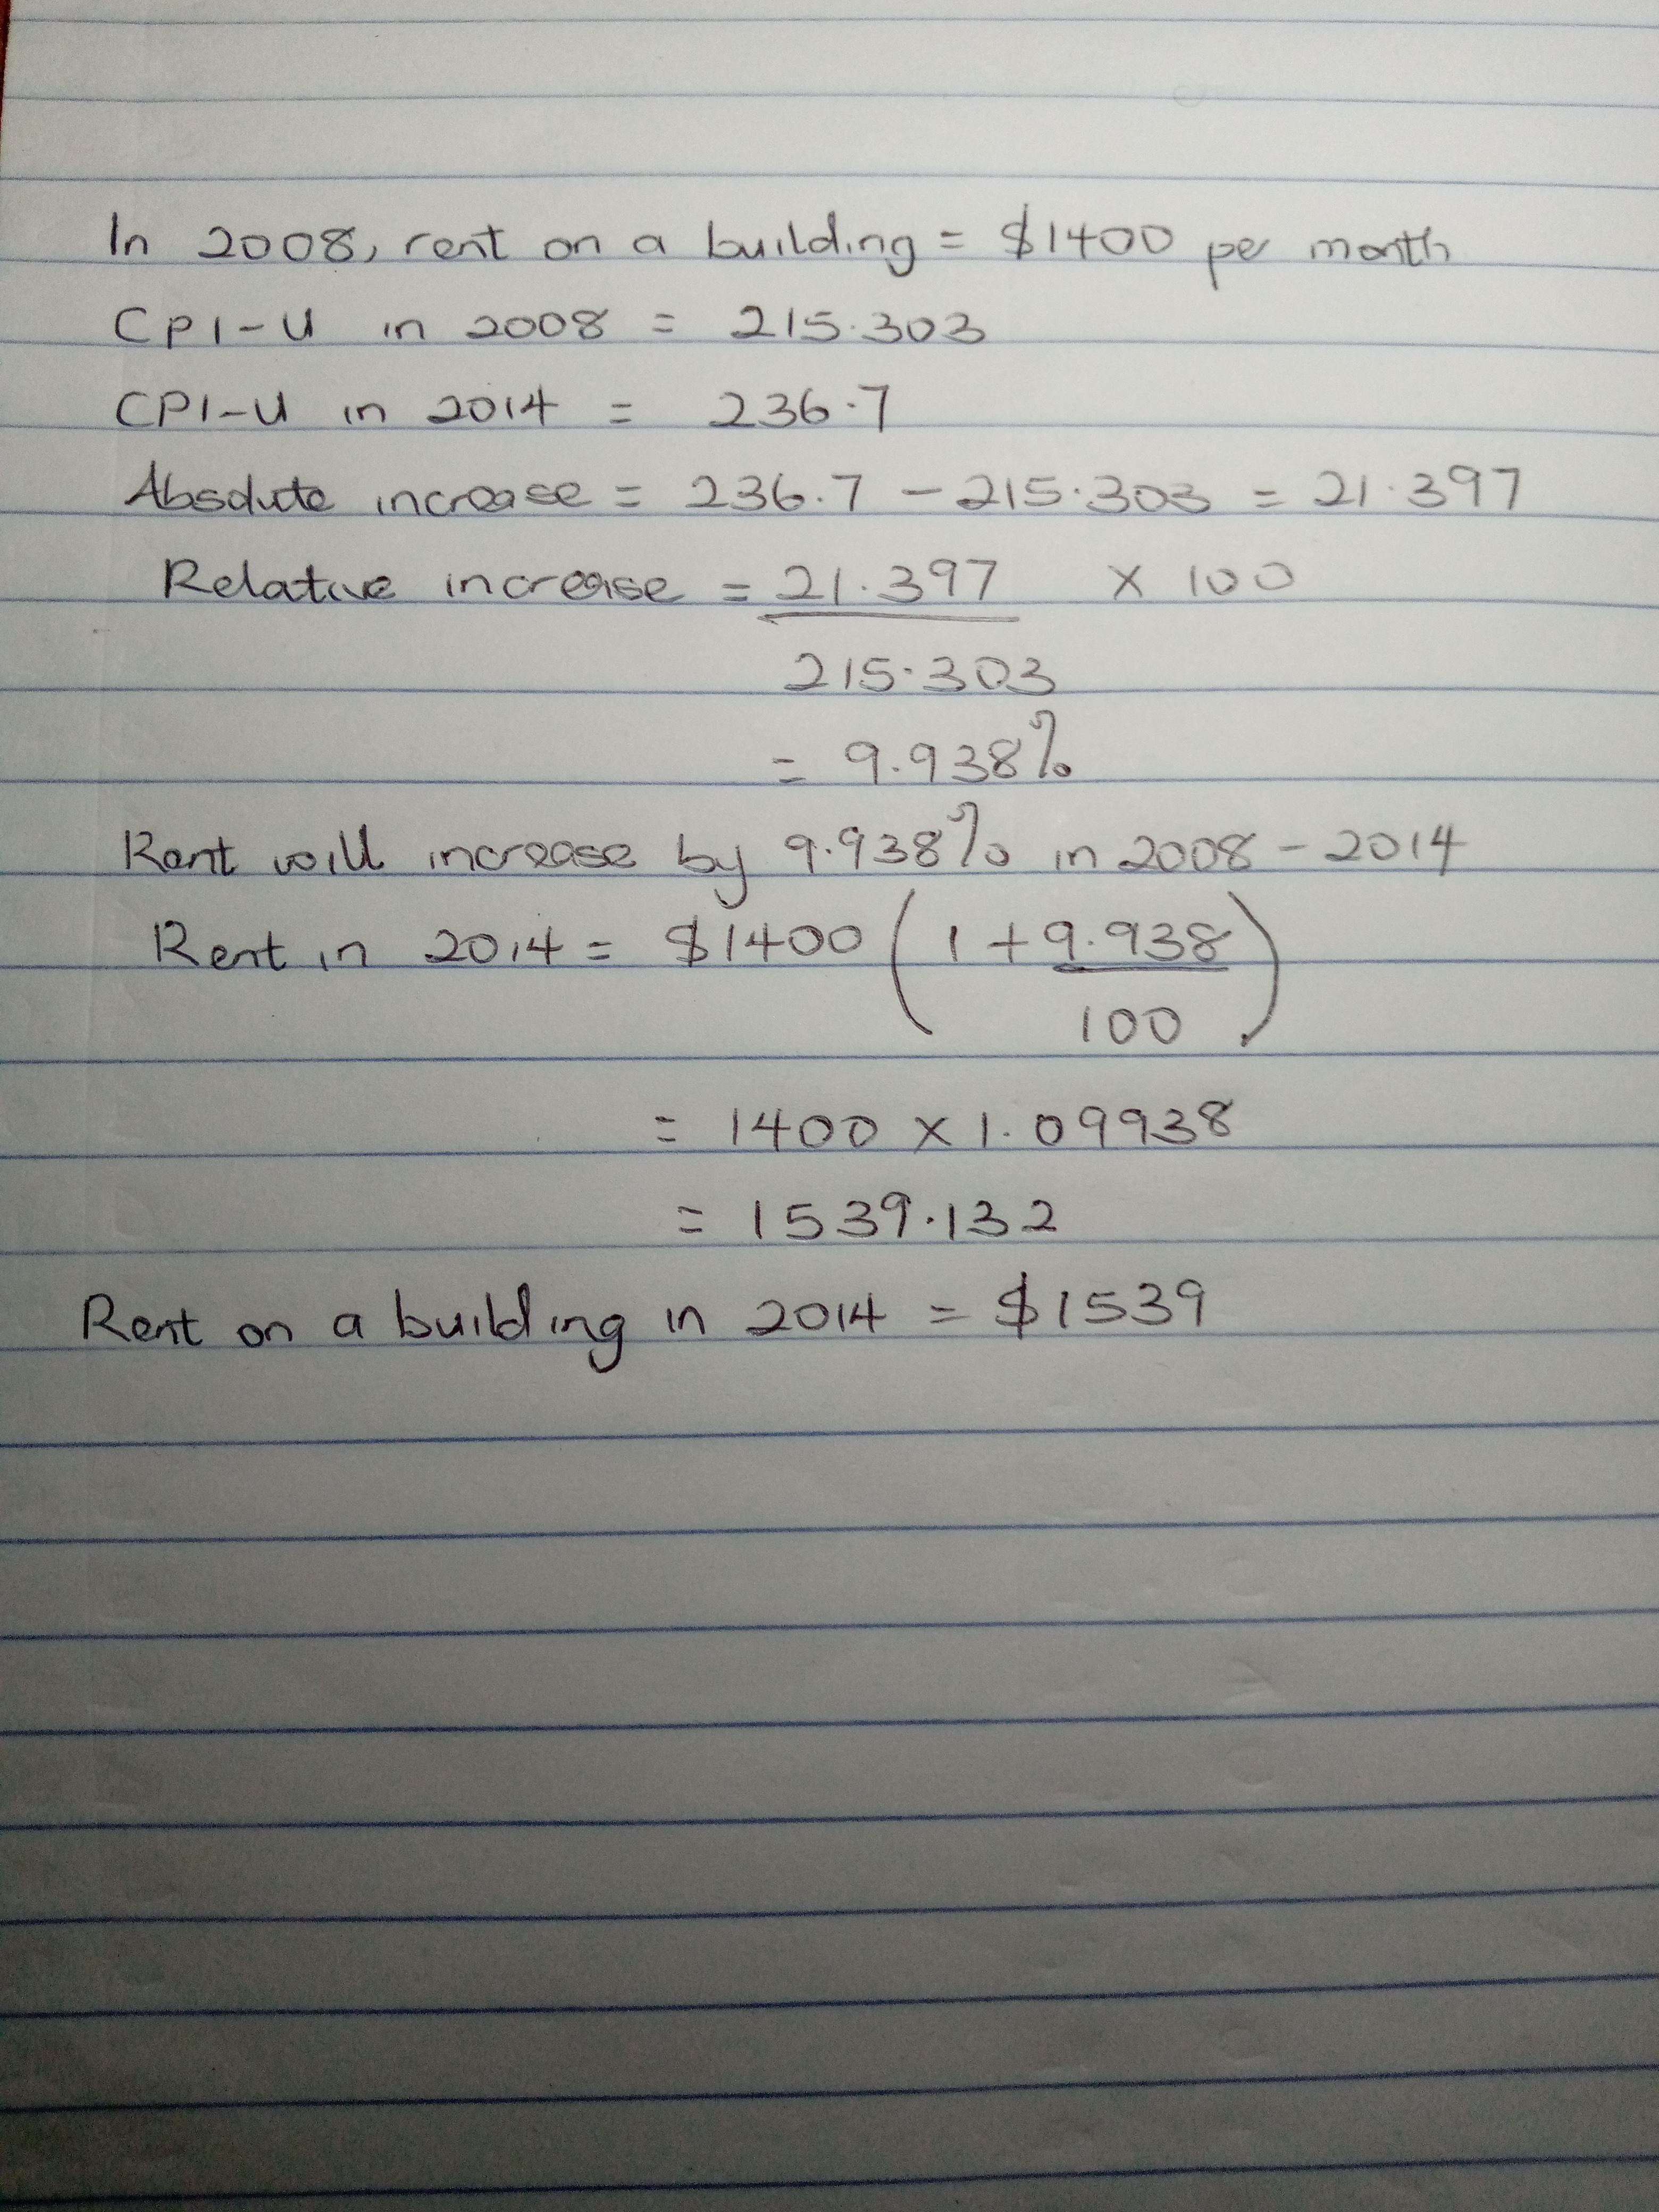 In 2008, rent on a building = $1400 per month
CPI-U in 2008 = 215.303
CPI-U in 2014 = 236.7
Absolute increase = 236.7 - 215.303 = 21.397
Relative increase = 21.397 × 100
215.303
= 9.938%
Rent will increase by 9.938% in 2008 - 2014
Rent in 2014 = $1400 (1 + 9.938
100)
= 1400 × 1.09938
= 1539.132
Rent on a building in 2014 = $1539